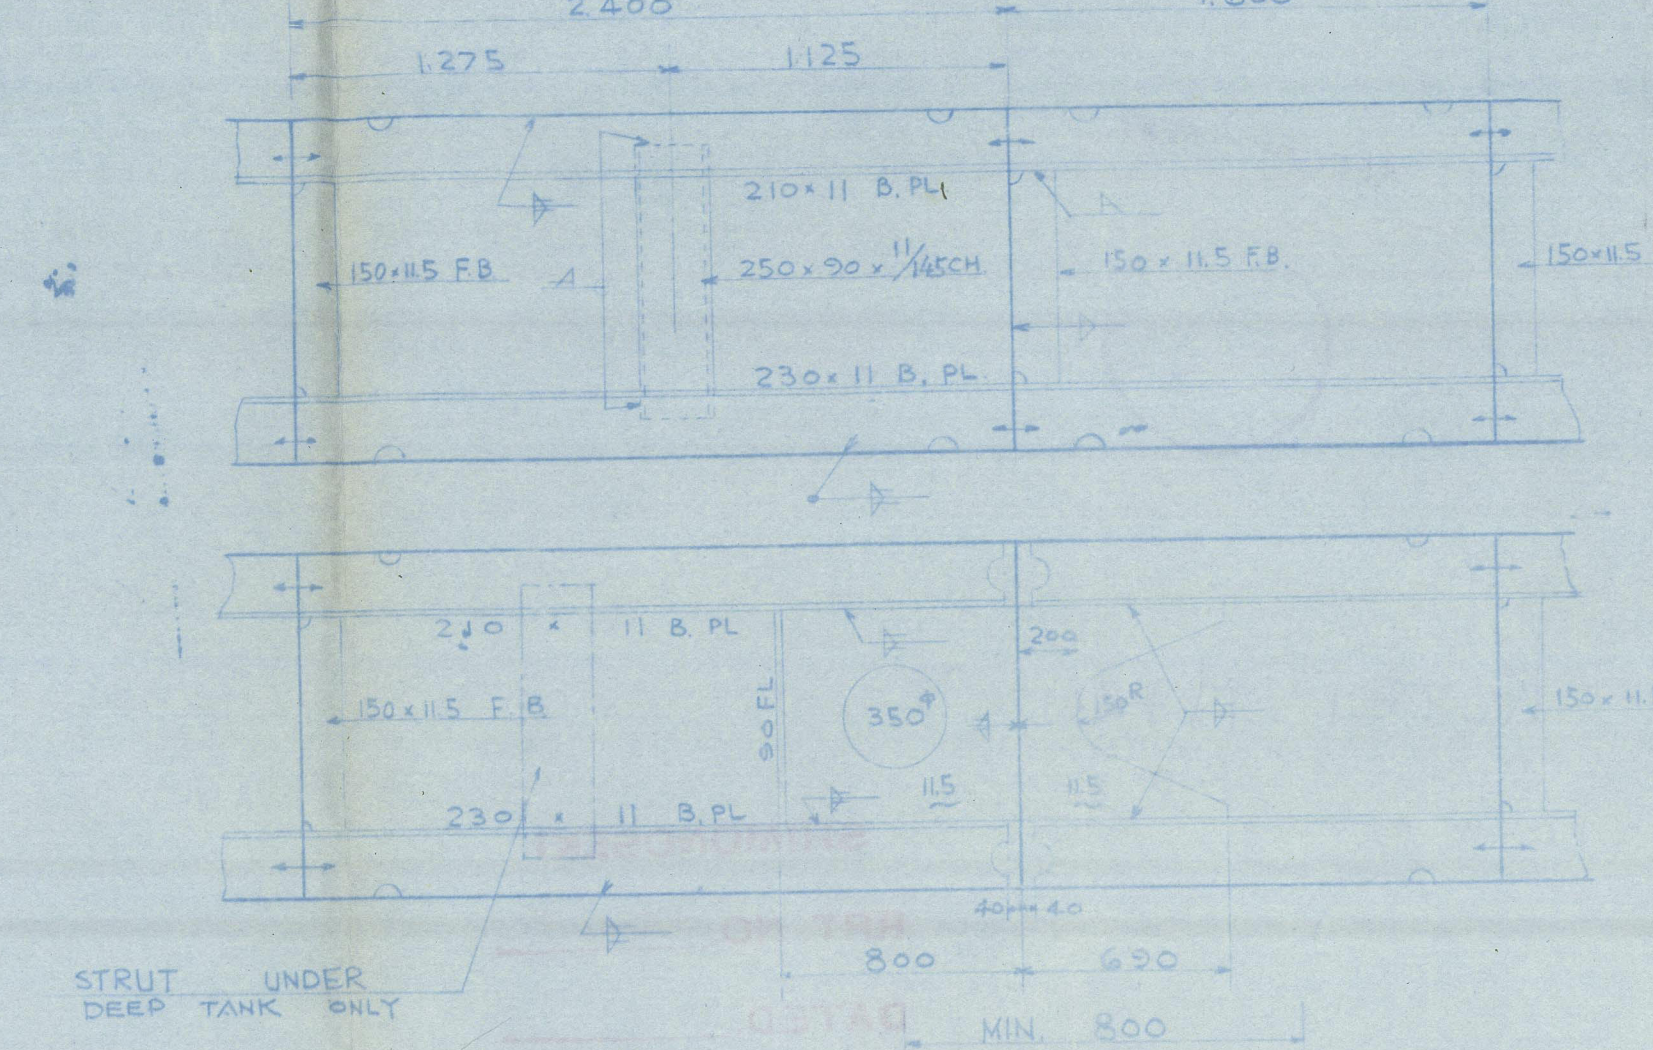 2.400
1.275
1.125
210 × 11 B. PL
150 × 11.5 F.B
A
250 × 90 × 11/14.5 CH.
A
150 × 11.5 F.B.
150 × 11.5
230 × 11 B. PL.
210 × 11 B. PL
200
150 × 11.5 F. B.
90 FL
350ϕ
150R
150 × 11.
11.5
11.5
230 × 11 B. PL
40 40
800
690
STRUT UNDER
DEEP TANK ONLY
MIN. 800
DATED